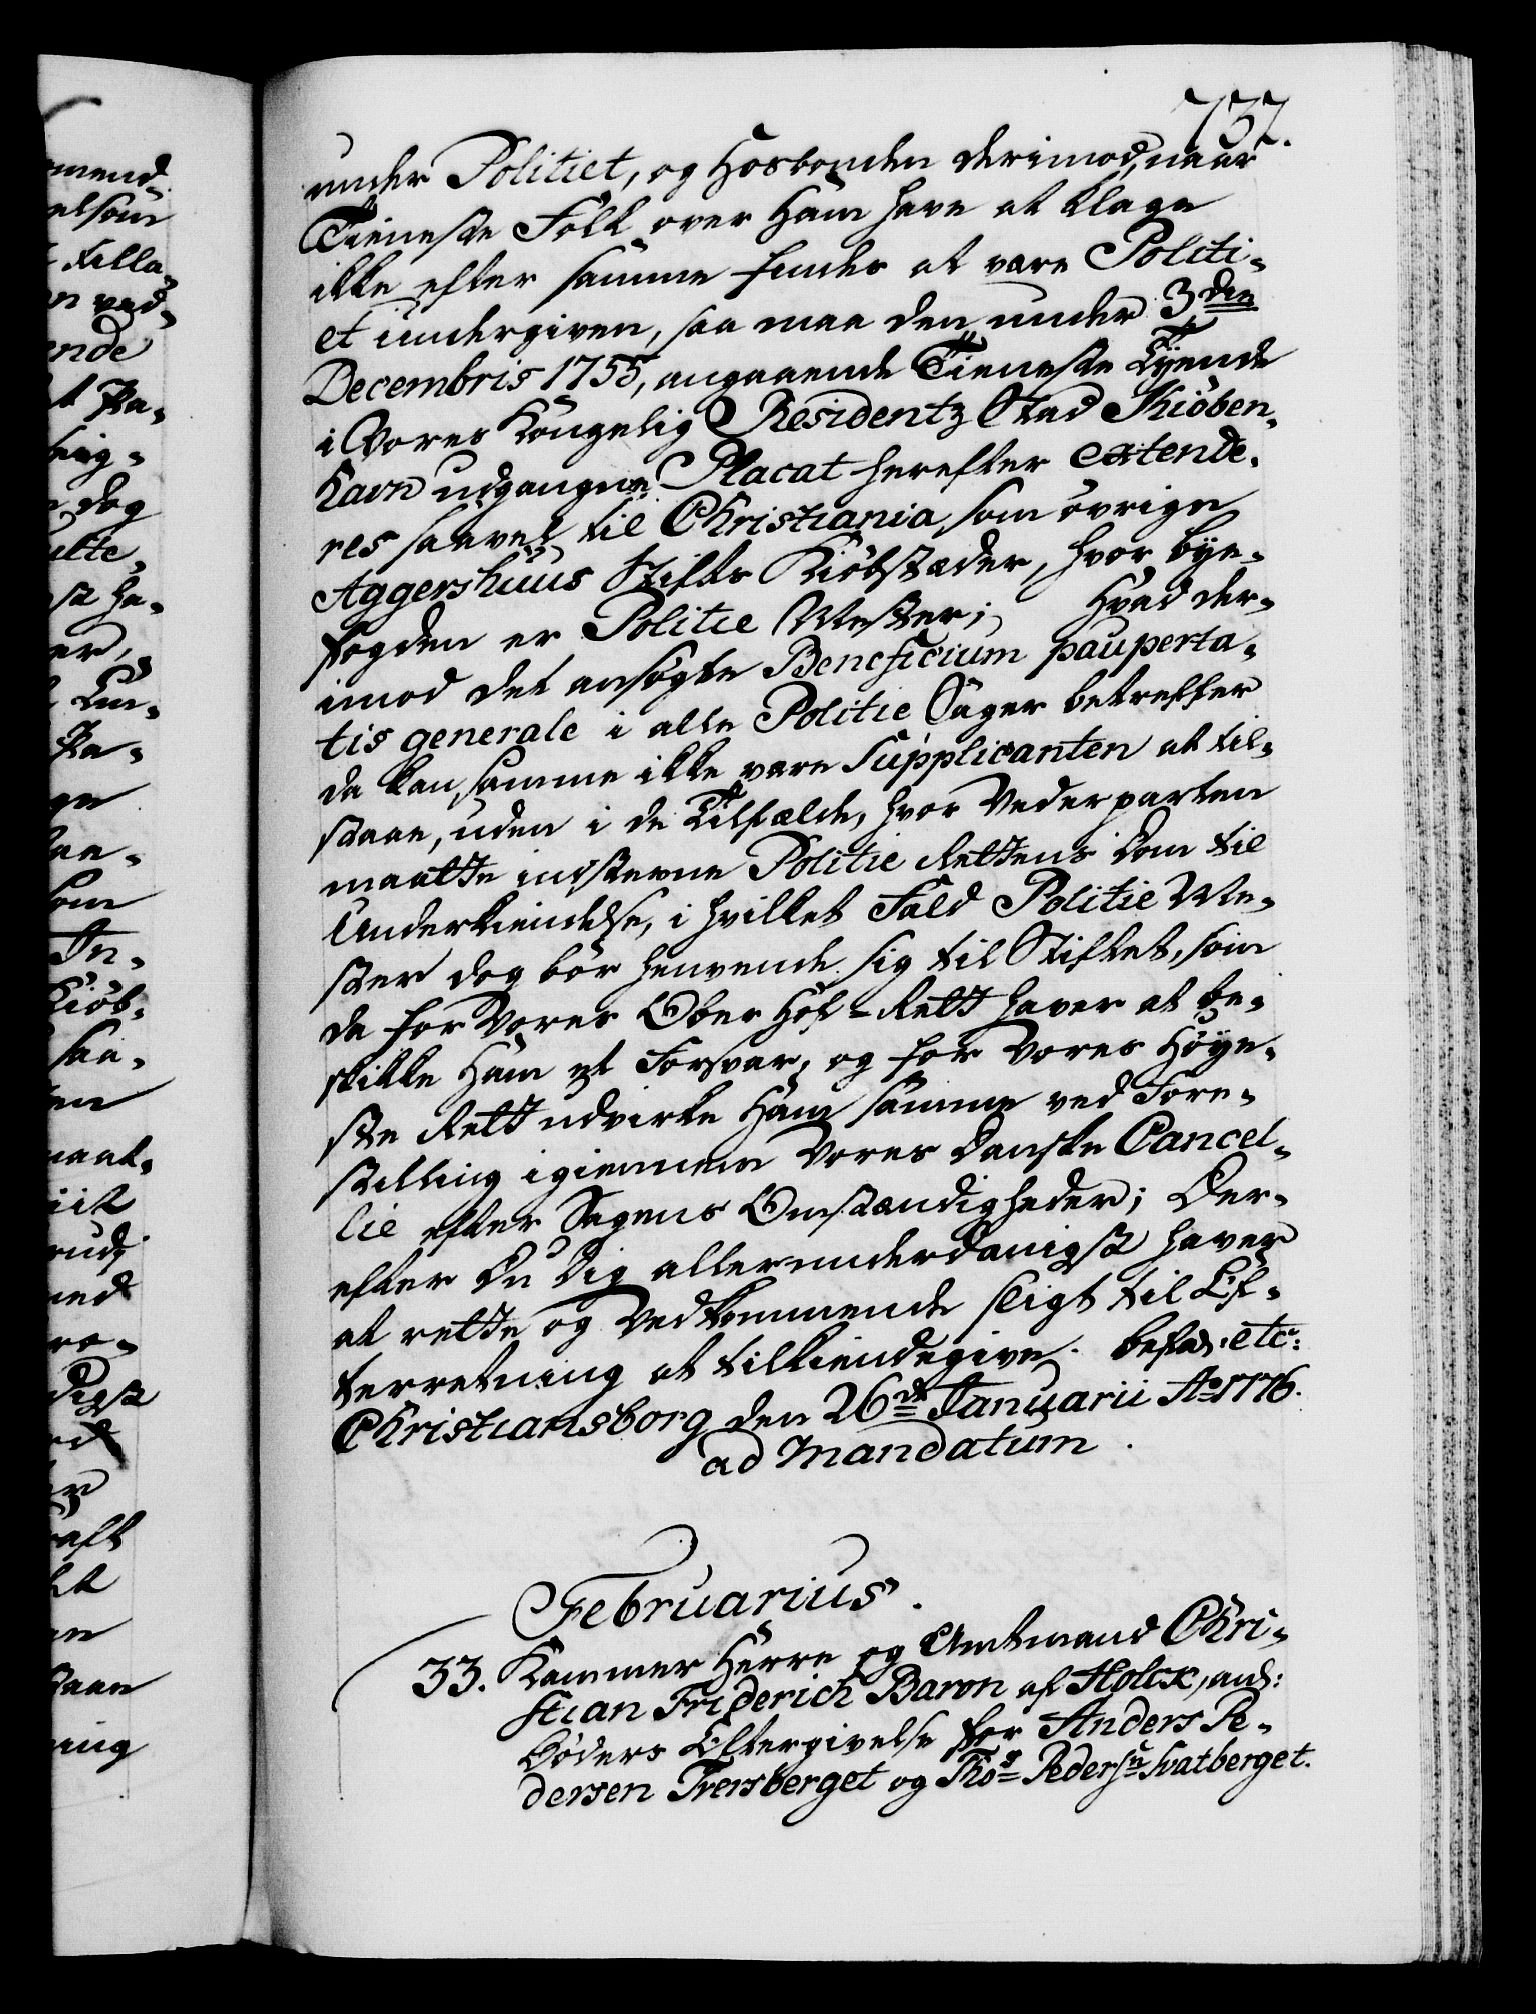 737.
under Politiet, og Hosbonden derimod, naar
Tieneste Folk over Ham have at klage
ikke efter samme findes at være Politi-
et undergiven, saa maa den under 3den
Decembris 1755, angaaende Tieneste Tyende
i Vores Kongelig Residentz Stad Kiöben-
havn udgangne Placat herefter extende-
res saavel til Christiania, som övrige
Aggershuus Stifts Kiöbstæder, hvor bye-
fogden er Politie Mester; Hvad der-
imod det ansögte Beneficium pauperta-
tis generale i alle Politie Sager betreffer
da kan samme ikke være Supplicanten at til-
staae, uden i de Tilfælde, hvor Vederparten
maatte indstevne Politie Rettens Dom til
Underkiendelse, i hvilket Fald Politie Me-
ster dog bör henvende sig til Stiftet, som
da for Vores Ober Hof-Rett haver at be-
skikke Ham et Forsvar, og for Vores Höye-
ste Rett udvirke Ham samme ved Fore-
stilling igiennem Vores Danske Cancel-
lie efter Sagens Omstændigheder; Der-
efter Du Dig allerunderdanigst haver
at rette og Vedkommende sligt til Ef-
terretning at tilkiendegive. befal: etc:
Christiansborg den 26de Januarii Ao 1776.
ad Mandatum.
Februarius.
33. Kammer Herre og Amtmand Chri-
stian Friderich Baron af Holck, anl:
Böders Eftergivelse for Anders Pe-
dersen Trersberget og Thos Pedersn Svatberget.